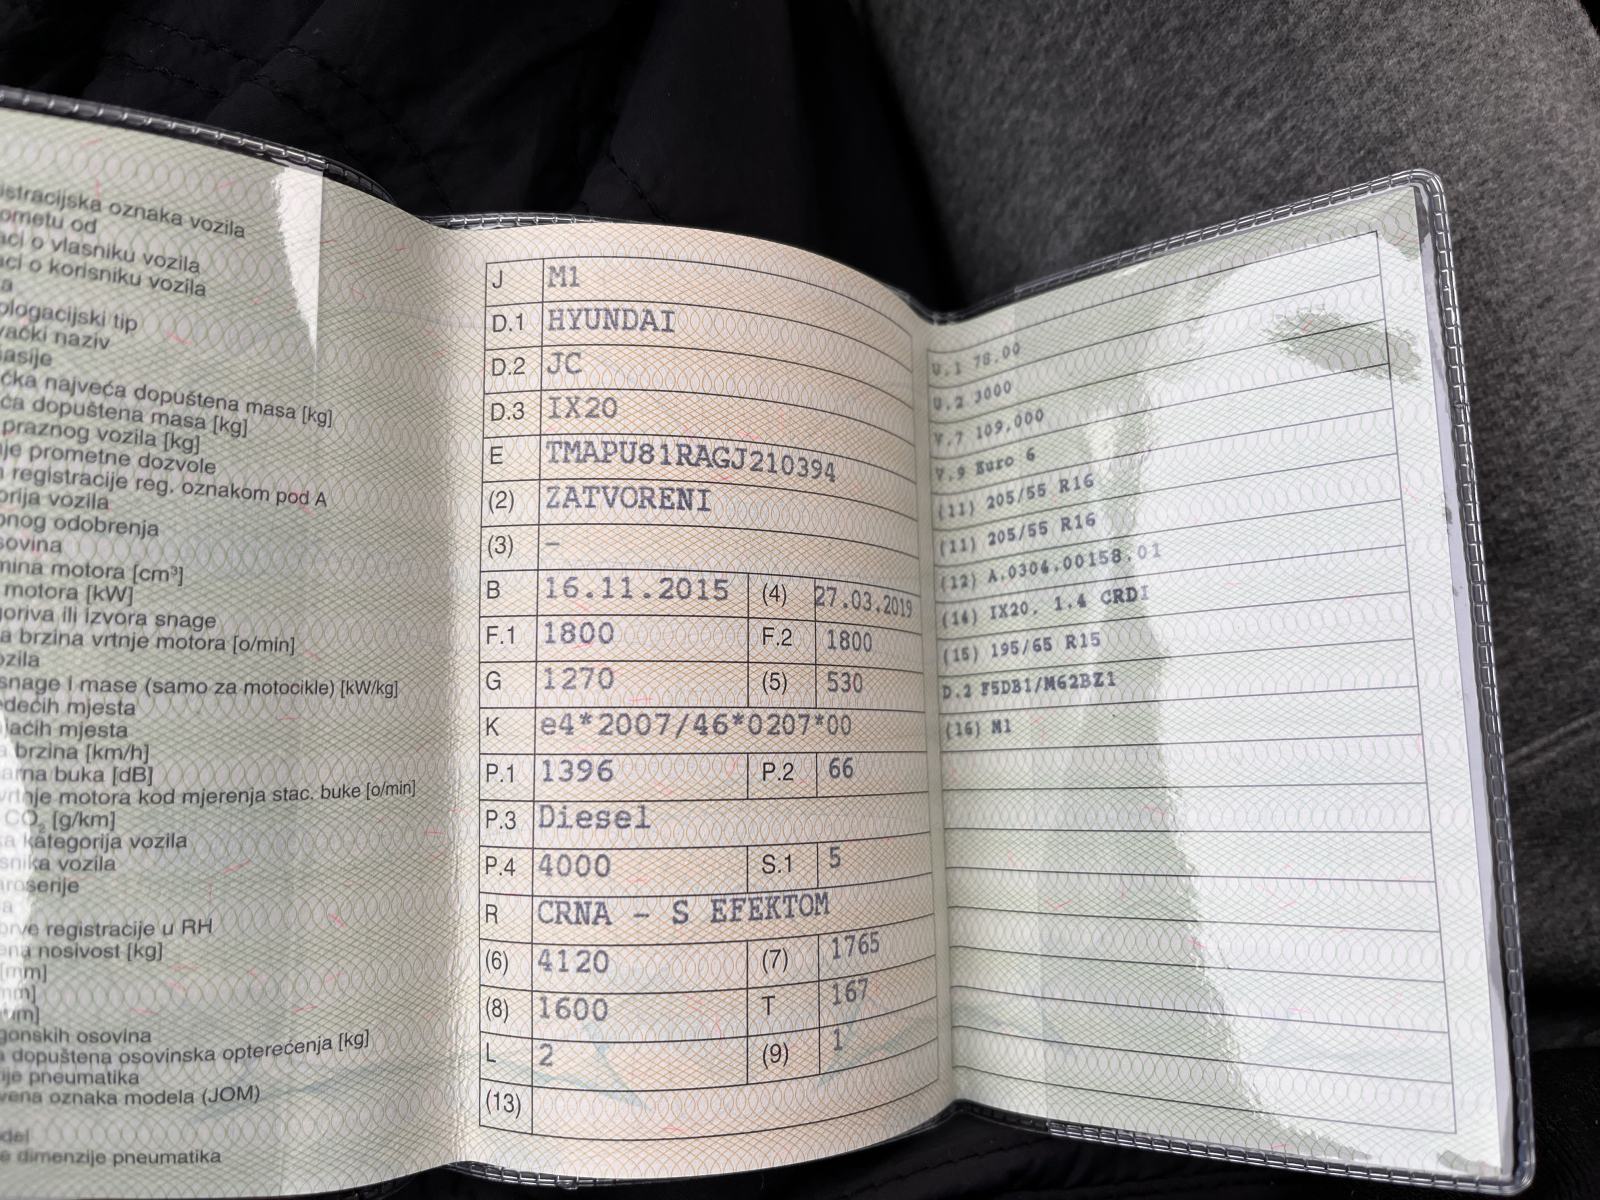 istracijska oznaka vozila
ometu od
aci o vlasniku vozila
aci o korisniku vozila
a
ologacijski tip
vački naziv
asije
čka najveća dopuštena masa [kg]
ća dopuštena masa [kg]
praznog vozila [kg]
je prometne dozvole
registracije reg. oznakom pod A
orija vozila
nog odobrenja
sovina
mina motora [cm³]
motora [kW]
goriva ili izvora snage
a brzina vrtnje motora [o/min]
ozila
snage i mase (samo za motocikle) [kW/kg]
dećih mjesta
jaćih mjesta
brzina [km/h]
arna buka [dB]
vrtnje motora kod mjerenja stac. buke [o/min]
CO₂ [g/km]
a kategorija vozila
snika vozila
aroserije
a
prve registracije u RH
ena nosivost [kg]
[mm]
mm]
gonskih osovina
a dopuštena osovinska opterećenja [kg]
ije pneumatika
vena oznaka modela (JOM)
del
e dimenzije pneumatika
J M1
D.1 HYUNDAI
D.2 JC
D.3 IX20
E TMAPU81RAGJ210394
(2) ZATVORENI
(3) –
B 16.11.2015 (4) 27.03.2019
F.1 1800 F.2 1800
G 1270 (5) 530
K e4*2007/46*0207*00
P.1 1396 P.2 66
P.3 Diesel
P.4 4000 S.1 5
R CRNA - S EFEKTOM
(6) 4120 (7) 1765
(8) 1600 T 167
L 2 (9) 1
(13)
U.1 78.00
U.2 3000
V.7 109,000
V.9 Euro 6
(11) 205/55 R16
(11) 205/55 R16
(12) A.0304.00158.01
(14) IX20, 1.4 CRDI
(15) 195/65 R15
D.2 F5DB1/M62BZ1
(16) M1